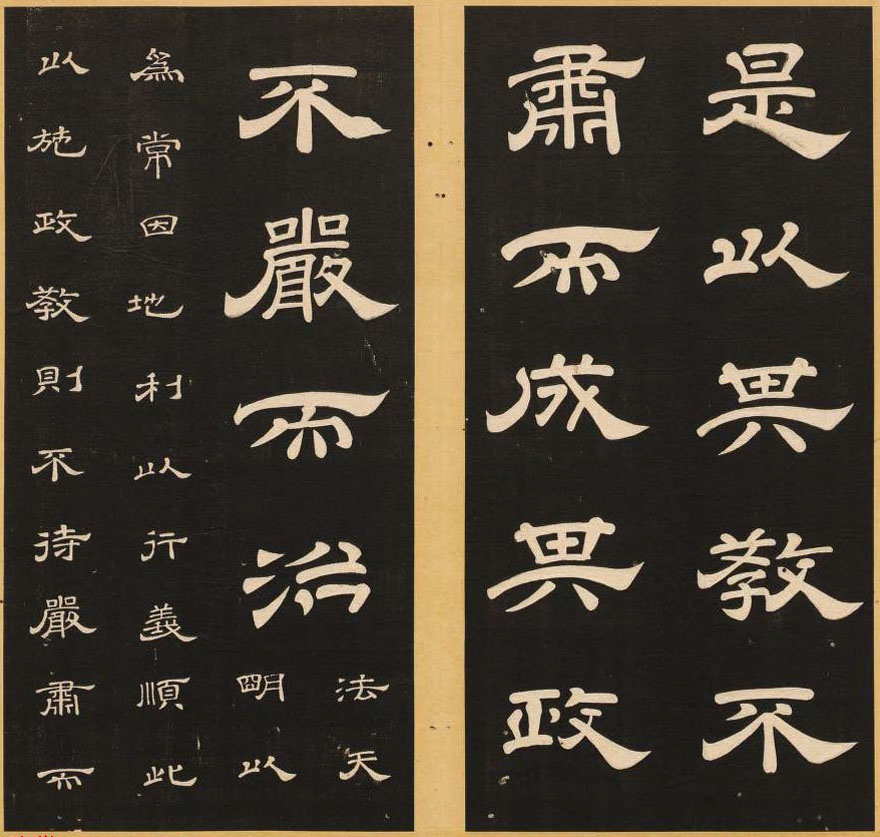 是以其教不
肅而成其政
不嚴而治
法天
明以
為常因地利以行義順此
以施政教則不待嚴肅而